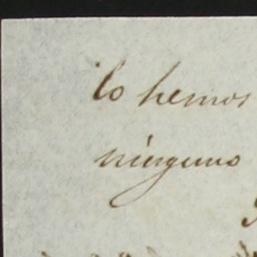 lo hemos
ninguno